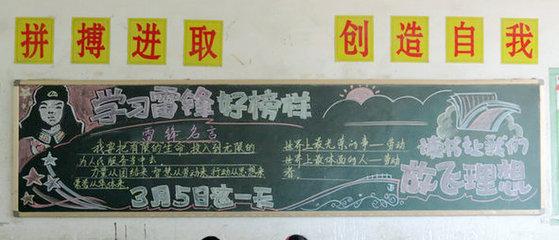 拼搏进取
创造自我
学习雷锋好榜样
雷锋名言
我要把有限的生命,投入到无限的
为人民服务当中去
力量从团结来 智慧从劳动来 行动从思想来
荣誉从集体来
3月5日这一天
世界上最光荣的事——劳动
世界上最体面的人——劳动
者
让我们
放飞理想